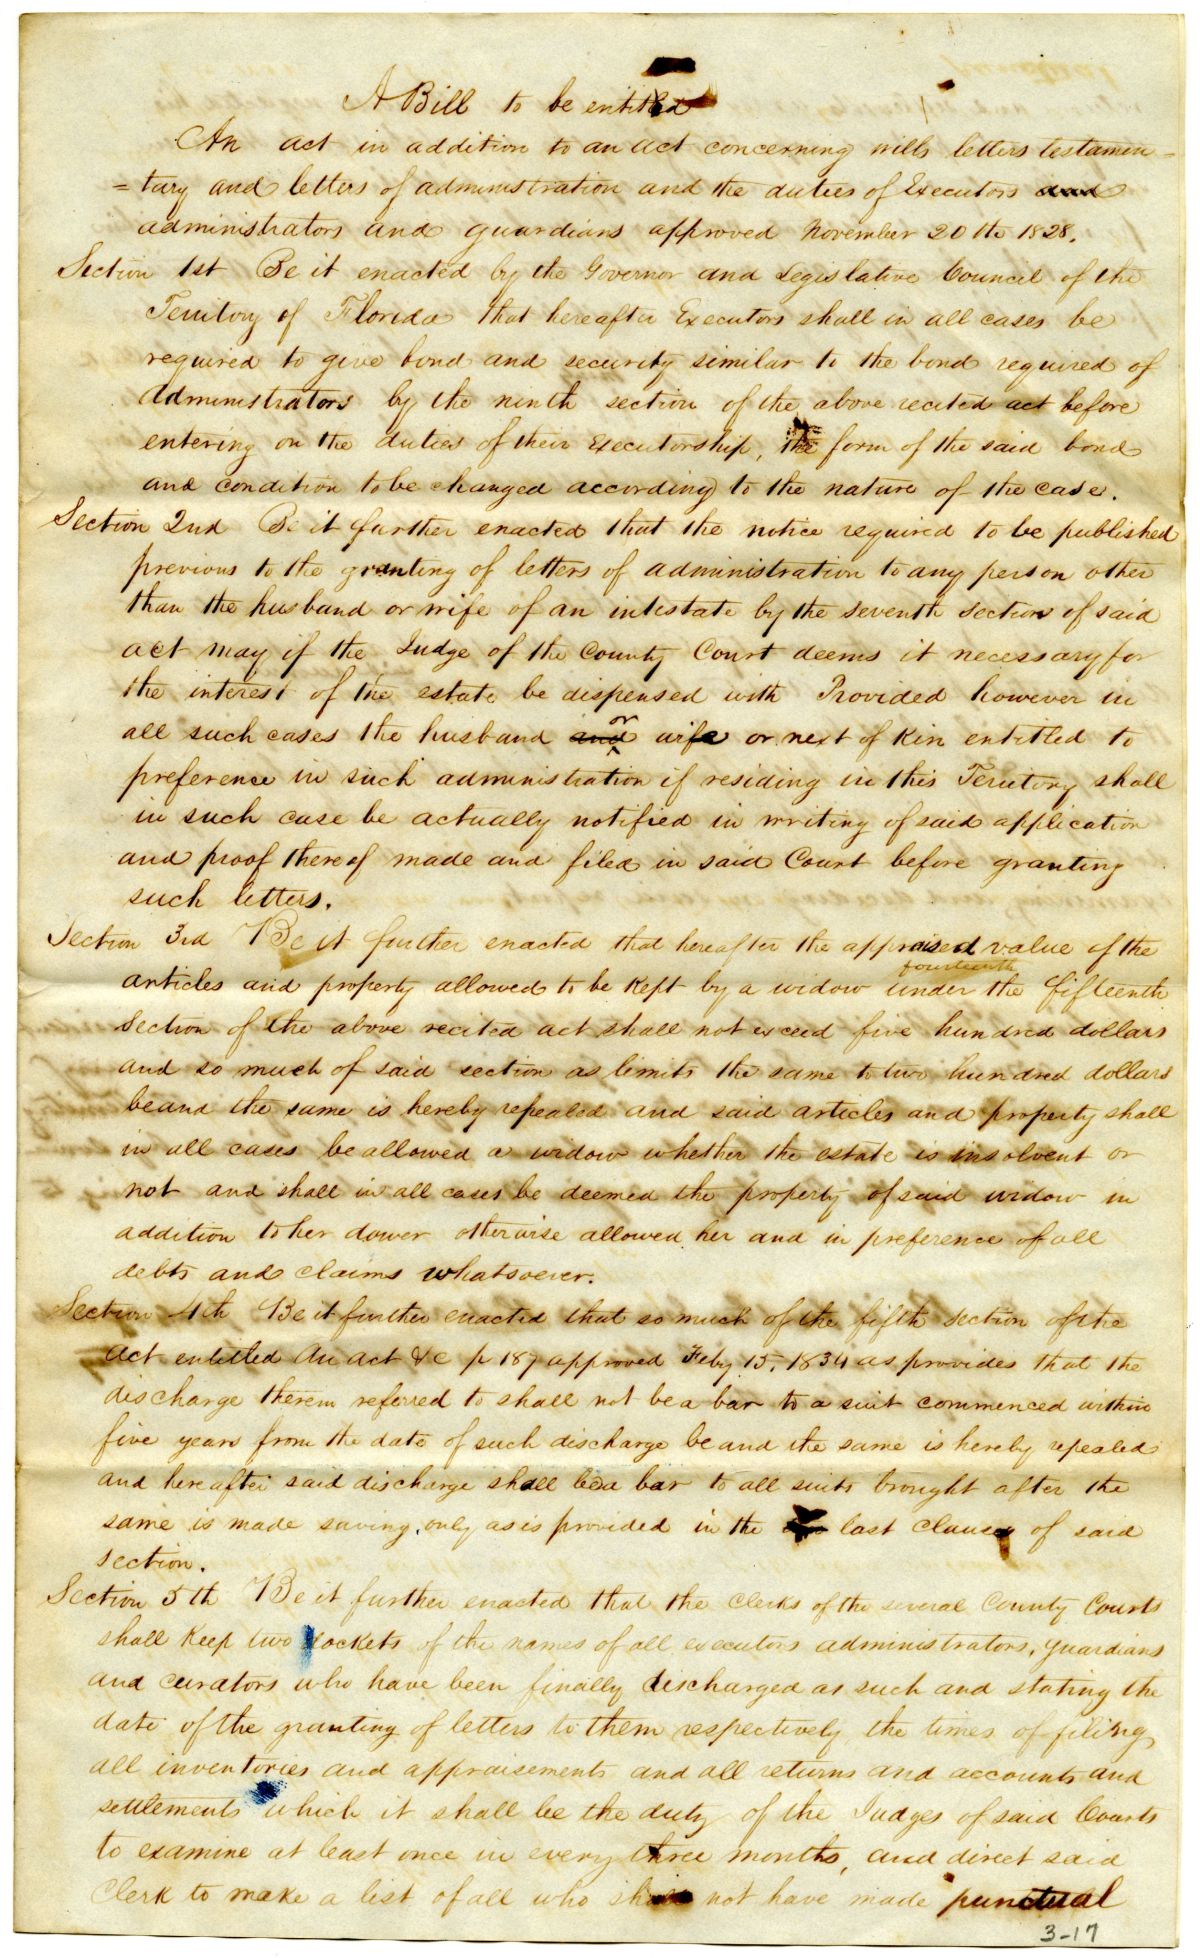 A Bill to be entitled
An act in addition to an act concerning wills letters testamen=
=tary and letters of administration and the duties of Executors and
administrators and guardians approved November 20th 1828.
Section 1st Be it enacted by the Governor and Legislative Council of the
Territory of Florida that hereafter Executors shall in all cases be
required to give bond and security similar to the bond required of
administrators by the ninth section of the above recited act before
entering on the duties of their Executorship, the form of the said bond
and condition to be changed according to the nature of the case.
Section 2nd Be it further enacted that the notice required to be published
previous to the granting of letters of administration to any person other
than the husband or wife of an intestate by the seventh section of said
act may if the Judge of the County Court deems it necessary for
the interest of the estate be dispensed with Provided however in
all such cases the husband and or wife or next of Kin entitled to
preference in such administration if residing in this Territory shall
in such case be actually notified in writing of said application
and proof thereof made and filed in said Court before granting
such letters.
Section 3rd Be it further enacted that hereafter the appraised value of the
articles and property allowed to be kept by a widow under the fourteenth fifteenth
section of the above recited act shall not exceed five hundred dollars
and so much of said section as limits the same to two hundred dollars
be and the same is hereby repealed and said articles and property shall
in all cases be allowed a widow whether the estate is insolvent or
not and shall in all cases be deemed the property of said widow in
addition to her dower otherwise allowed her and in preference of all
debts and claims whatsoever.
Section 4th Be it further enacted that so much of the fifth section of the
act entitled An act &c p 187 approved Feby 15, 1834 as provides that the
discharge therein referred to shall not be a bar to a suit commenced within
five years from the date of such discharge be and the same is hereby repealed
and hereafter said discharge shall be a bar to all suits brought after the
same is made saving, only as is provided in the last clause of said
section.
Section 5th Be it further enacted that the Clerks of the several County Courts
shall Keep two dockets of the names of all executors administrators, guardians
and curators who have been finally discharged as such and stating the
date of the granting of letters to them respectively the times of filing
all inventories and appraisements and all returns and accounts and
settlements which it shall be the duty of the Judges of said Courts
to examine at least once in every three months, and direct said
Clerk to make a list of all who shall not have made punctual
3-17